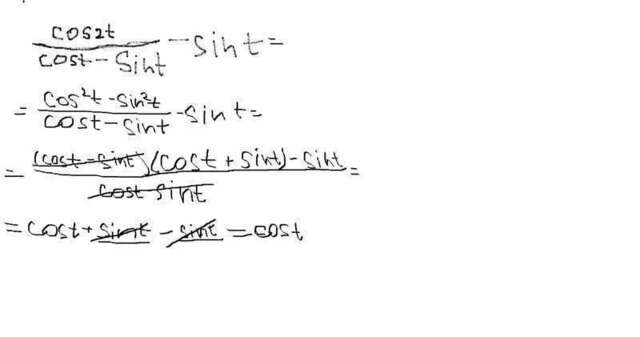 cos2t / cost - sint - sint =
= cos²t - sin²t / cost - sint - sint =
= (cost - sint)(cost + sint) - sint / cost sint =
= cost + sint - sint = cost